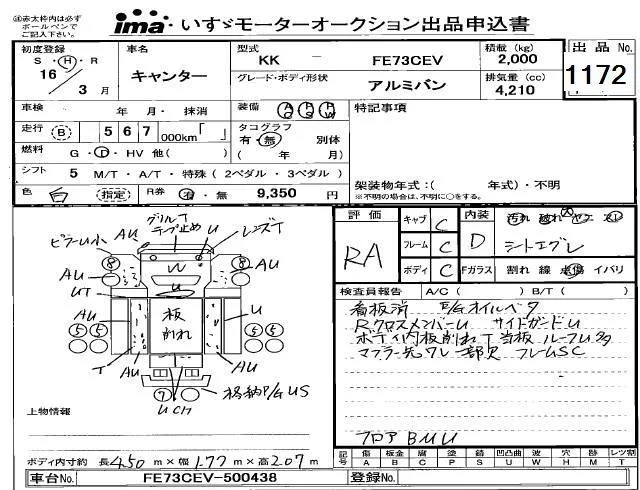 ㊟赤太枠内は必ず
ボールペンで
ご記入下さい。
ima・いすゞモーターオークション出品申込書
初度登録 S・H・R 16年 3月
車名 キャンター
型式 KK － FE73CEV
グレード・ボディ形状 アルミバン
積載(kg) 2,000
排気量(cc) 4,210
出品No. 1172
車検 年 月・抹消
装備 AC PS PW
特記事項
走行 B 567,000km「 」
タコグラフ 有・無 別体
( 年 月)
燃料 G・D・HV 他( )
シフト 5 M/T・A/T・特殊(2ペダル・3ペダル)
色 白 (指定) R券 有・無 9,350円
架装物年式:( 年式)・不明
※不明の場合は、不明に○をする。
評価 RA
キャブ C
フレーム C
ボディ C
内装 D 汚れ 破れ 大 ヤニ
シートエグレ
Fガラス 割れ 線 点傷 イバリ
検査員報告 A/C( ) B/T( )
看板済 E/Gオイルベタ
RクロスメンバーU サイドガードU
ボディ内板削れT当板 ルーフU多
マフラー先ワレ一部欠 フレームSC
フロアBUU
グリルT
テープ止め U レンズT
ピラーU小 AU AU
8 8
W
U
AU AU
UT
AU U
板
削れ
5 5 5 5
T AU AU
7
格納P/G US
UCH
上物情報
ボディ内寸約 長450m×幅177m×高207m
記号 傷A 板金B 腐C 塗P 錆S 凹U 凸凹曲W 穴H 跡M レツ割T
車台No. FE73CEV-500438 登録No.